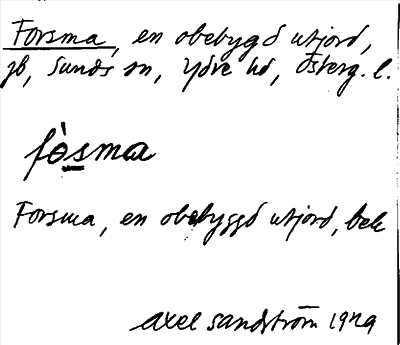 Forsma, en obebygd utjord,
jb, Sunds sn, Ydre hd, Österg. l.
fòsma
Forsma, en obebyggd utjord, bek
Axel Sandström 1929